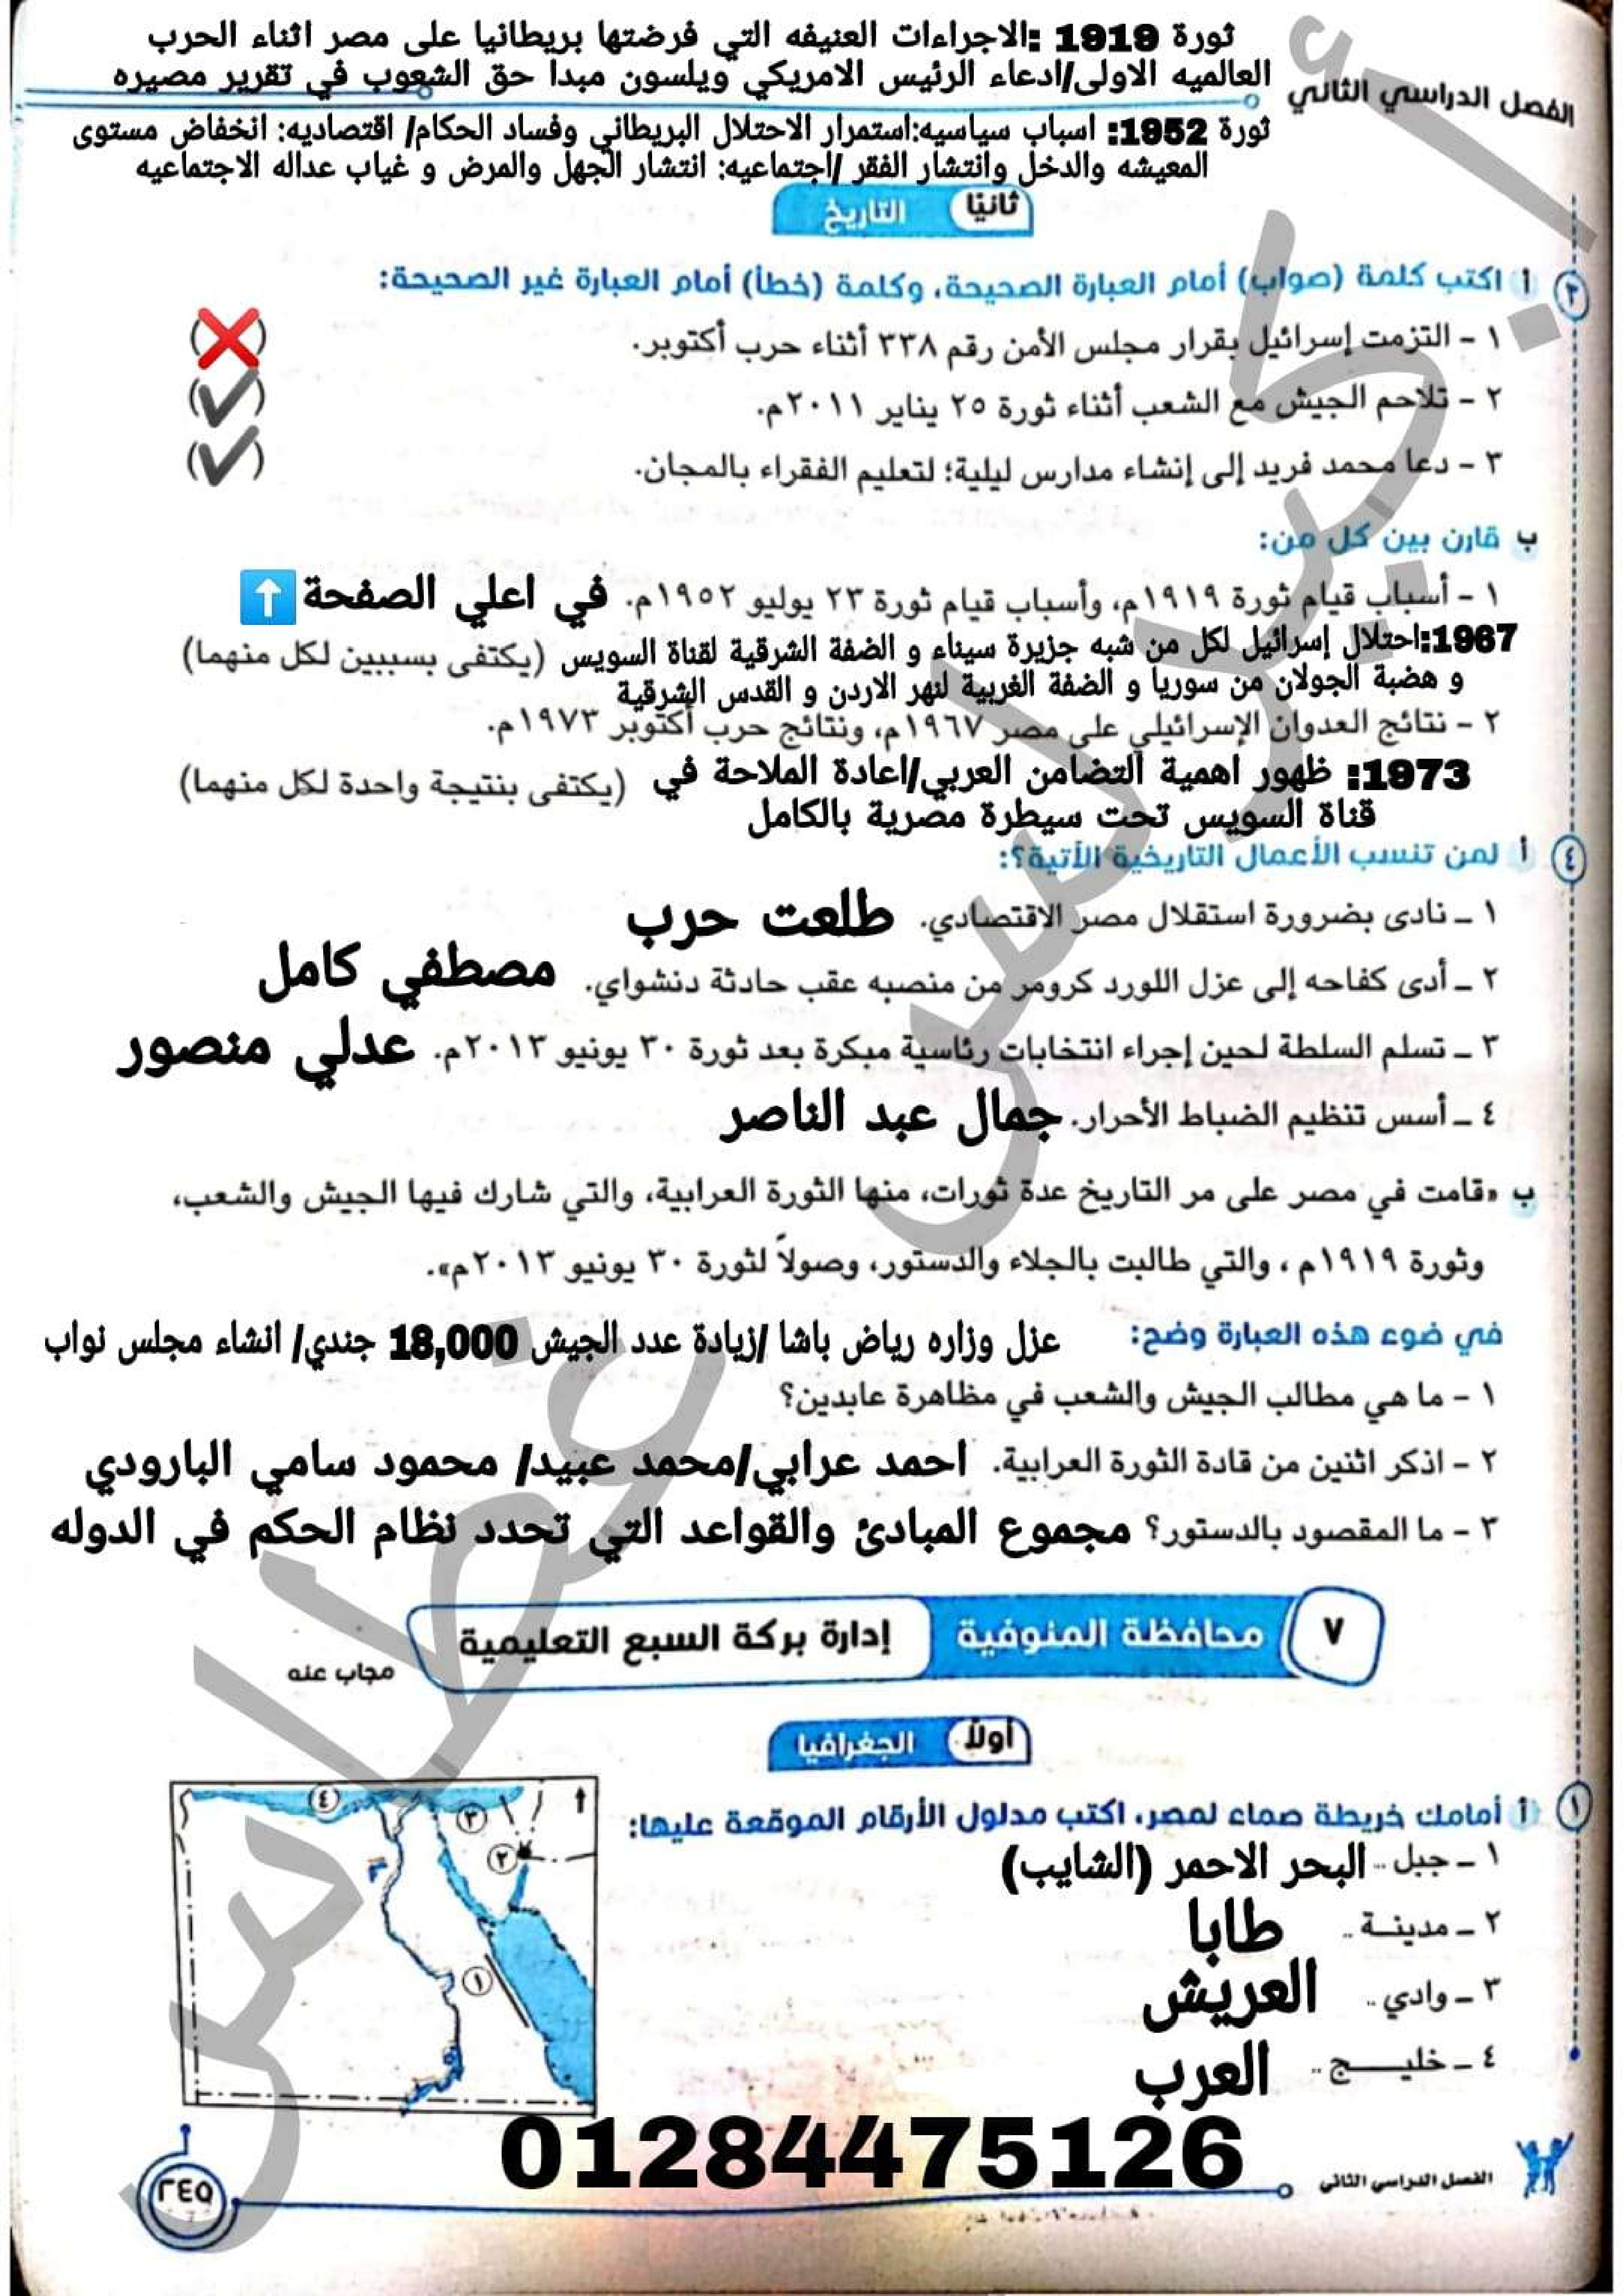 ثورة 1919 :الاجراءات العنيفه التي فرضتها بريطانيا على مصر اثناء الحرب
العالميه الاولى/ادعاء الرئيس الامريكي ويلسون مبدا حق الشعوب في تقرير مصيره
الفصل الدراسي الثاني
ثورة 1952: اسباب سياسيه:استمرار الاحتلال البريطاني وفساد الحكام/ اقتصاديه: انخفاض مستوى
المعيشه والدخل وانتشار الفقر /اجتماعيه: انتشار الجهل والمرض و غياب عداله الاجتماعيه
ثانيًا التاريخ
٣ أ اكتب كلمة (صواب) أمام العبارة الصحيحة، وكلمة (خطأ) أمام العبارة غير الصحيحة:
١ - التزمت إسرائيل بقرار مجلس الأمن رقم ٣٣٨ أثناء حرب أكتوبر. (❌)
٢ - تلاحم الجيش مع الشعب أثناء ثورة ٢٥ يناير ٢٠١١م. (✔)
٣ - دعا محمد فريد إلى إنشاء مدارس ليلية؛ لتعليم الفقراء بالمجان. (✔)
ب قارن بين كل من:
١ - أسباب قيام ثورة ١٩١٩م، وأسباب قيام ثورة ٢٣ يوليو ١٩٥٢م. في اعلي الصفحة ⬆
1967:احتلال إسرائيل لكل من شبه جزيرة سيناء و الضفة الشرقية لقناة السويس (يكتفى بسببين لكل منهما)
و هضبة الجولان من سوريا و الضفة الغربية لنهر الاردن و القدس الشرقية
٢ - نتائج العدوان الإسرائيلي على مصر ١٩٦٧م، ونتائج حرب أكتوبر ١٩٧٣م.
1973: ظهور اهمية التضامن العربي/اعادة الملاحة في (يكتفى بنتيجة واحدة لكل منهما)
قناة السويس تحت سيطرة مصرية بالكامل
٤ أ لمن تنسب الأعمال التاريخية الأتية؟:
١ - نادى بضرورة استقلال مصر الاقتصادي. طلعت حرب
٢ - أدى كفاحه إلى عزل اللورد كرومر من منصبه عقب حادثة دنشواي. مصطفي كامل
٣ - تسلم السلطة لحين إجراء انتخابات رئاسية مبكرة بعد ثورة ٣٠ يونيو ٢٠١٣م. عدلي منصور
٤ - أسس تنظيم الضباط الأحرار. جمال عبد الناصر
ب «قامت في مصر على مر التاريخ عدة ثورات، منها الثورة العرابية، والتي شارك فيها الجيش والشعب،
وثورة ١٩١٩م ، والتي طالبت بالجلاء والدستور، وصولاً لثورة ٣٠ يونيو ٢٠١٣م».
في ضوء هذه العبارة وضح: عزل وزاره رياض باشا /زيادة عدد الجيش 18,000 جندي/ انشاء مجلس نواب
١ - ما هي مطالب الجيش والشعب في مظاهرة عابدين؟
٢ - اذكر اثنين من قادة الثورة العرابية. احمد عرابي/محمد عبيد/ محمود سامي البارودي
٣ - ما المقصود بالدستور؟ مجموع المبادئ والقواعد التي تحدد نظام الحكم في الدوله
٧ محافظة المنوفية إدارة بركة السبع التعليمية
مجاب عنه
أولاً الجغرافيا
١ أ أمامك خريطة صماء لمصر، اكتب مدلول الأرقام الموقعة عليها:
١ - جبل .. البحر الاحمر (الشايب)
٢ - مدينة .. طابا
٣ - وادي .. العريش
٤ - خليج .. العرب
٤
٣
٢
١
01284475126
الفصل الدراسي الثاني
٢٤٥
أ. كيرلس غطاس